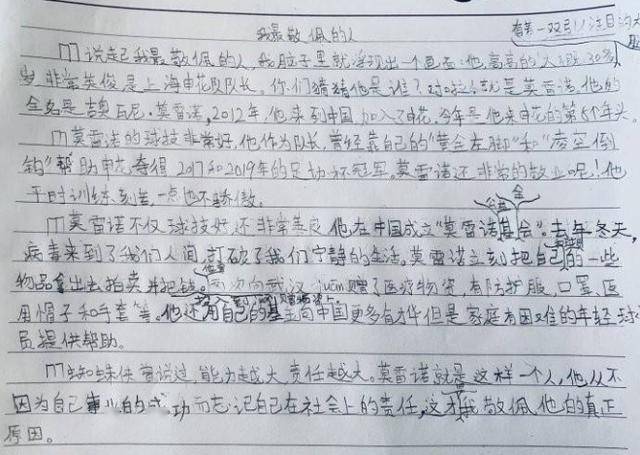 我最敬佩的人
有着一双引人注目的大
说起我最敬佩的人,我脑子里就浮现出一个画面:他高高的个子,30多
岁,非常英俊是上海申花队队长。你们猜猜他是谁?对啦!就是莫雷诺,他的
全名是吉奥瓦尼·莫雷诺,2012年,他来到中国加入了申花,今年是他来申花的第个年头。
莫雷诺的球技非常好,他作为队长,曾经靠自己的“黄金左脚”和“凌空倒
钩”帮助申花夺得2017和2019年的足协杯冠军。莫雷诺还非常的敬业呢!他
平时训练刻苦,一点也不骄傲。
公益 金
莫雷诺不仅球技好,还非常善良,他在中国成立“莫雷诺基会”。去年冬天,
病毒来到了我们人间,打破了我们宁静的生活。莫雷诺立刻把自己的一些
物品拿出去拍卖,并把钱两次向武汉juān赠了医疗物资,有防护服、口罩、医
用帽子和手套等。他还用自己的基金向中国更多有才华但是家庭有困难的年轻球
员提供帮助。
蜘蛛侠曾说过,能力越大责任越大。莫雷诺就是这样一个人,他从不
因为自己事儿的成功而忘记自己在社会上的责任,这才我敬佩他的真正
原因。